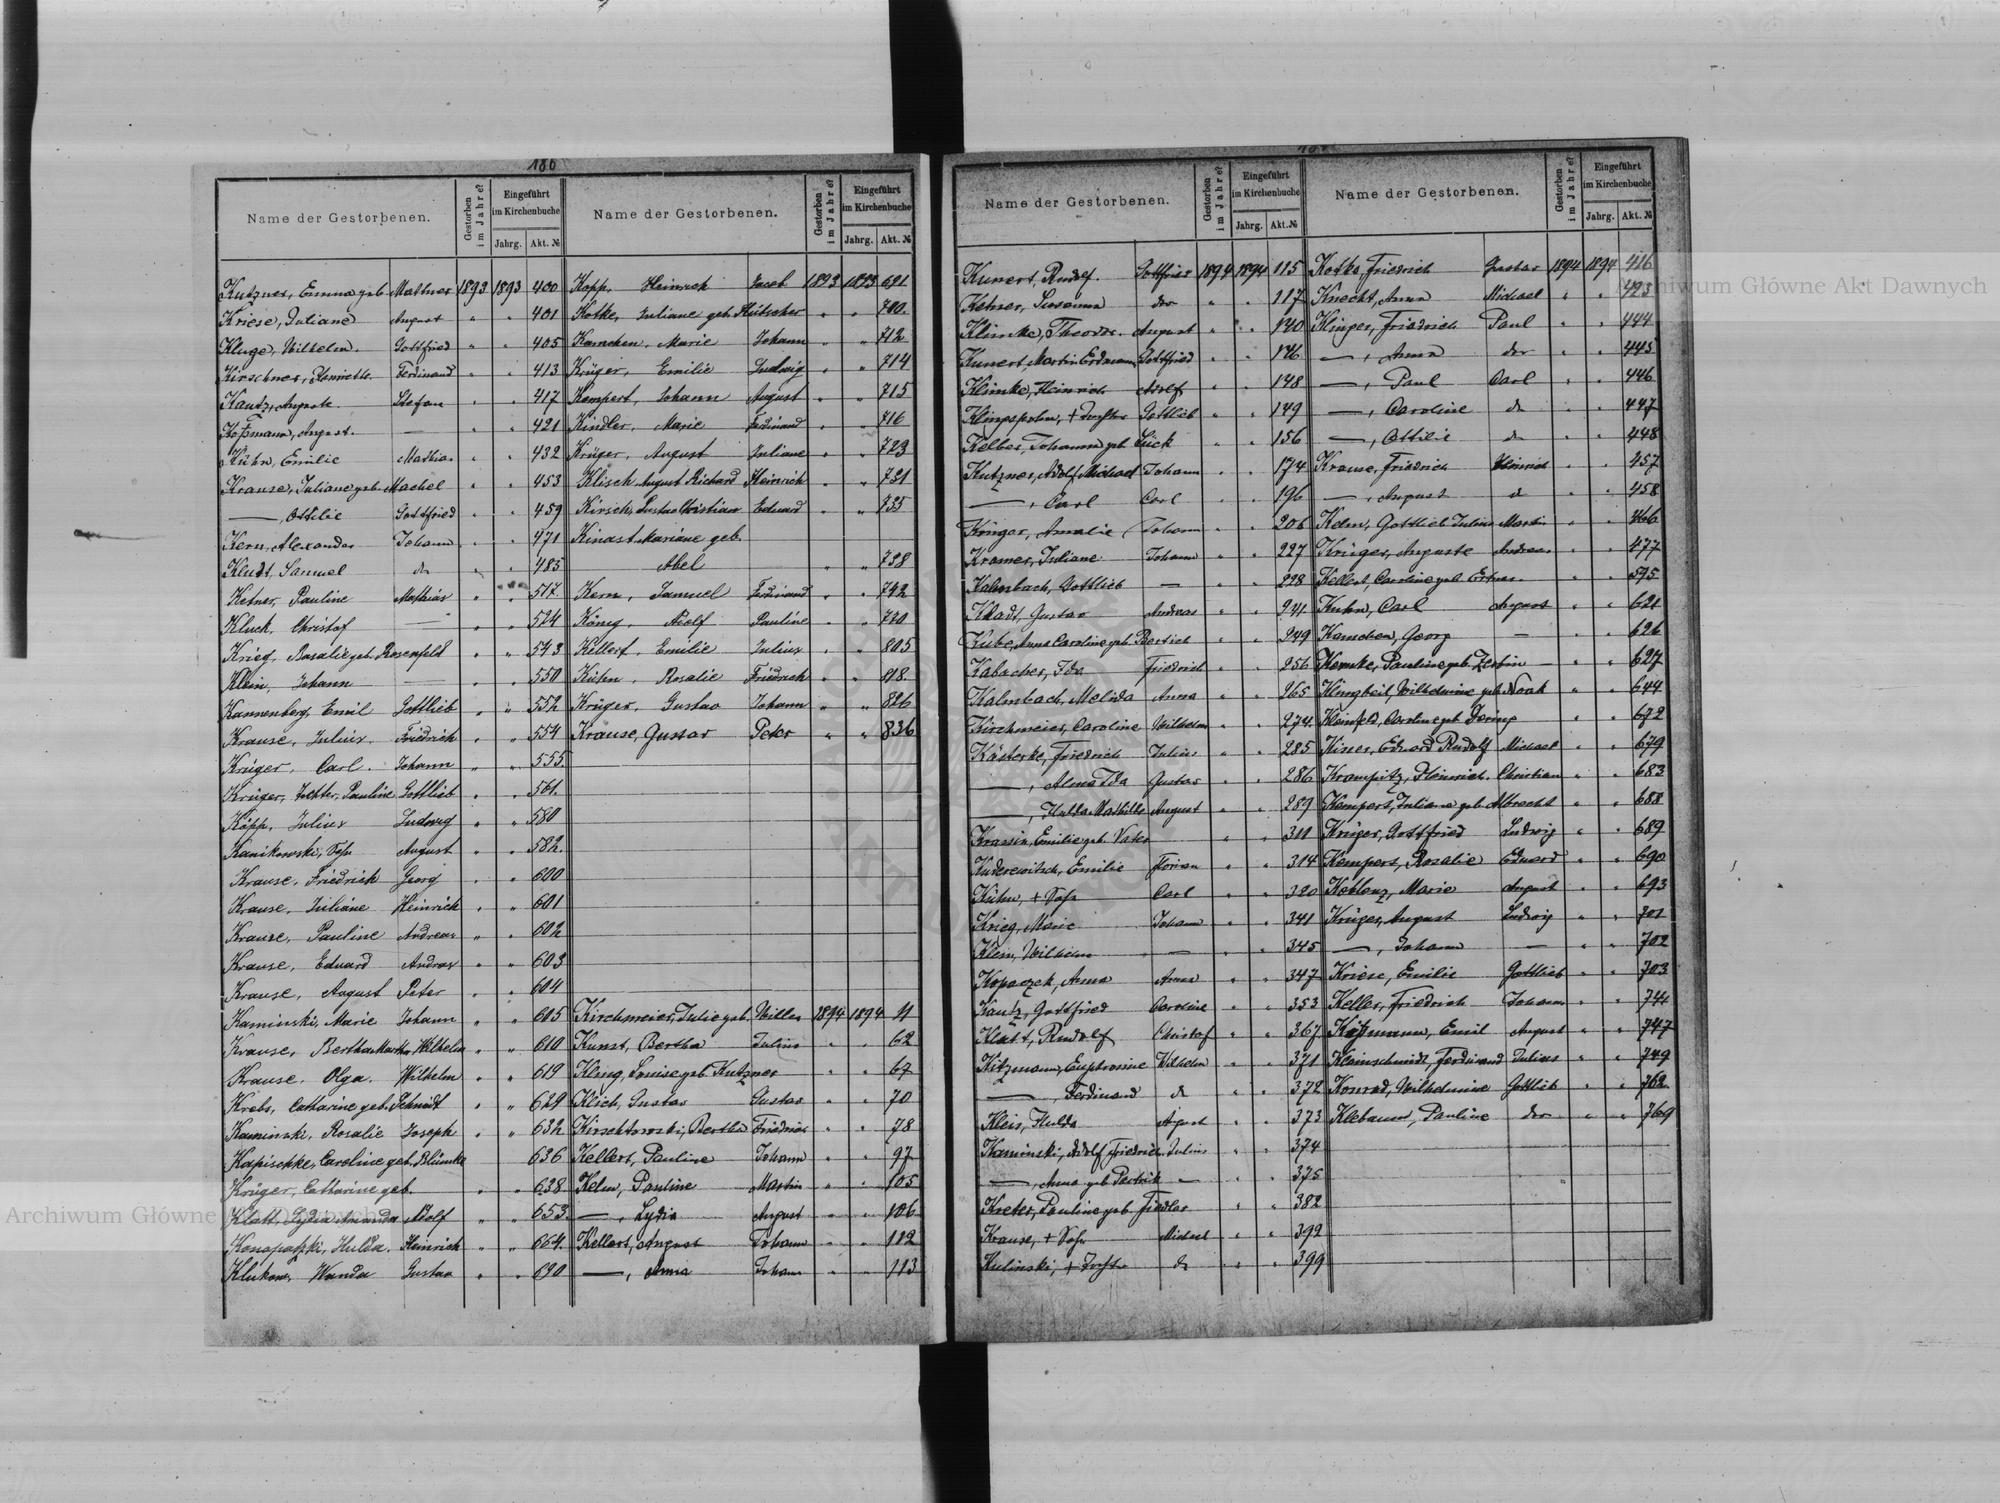 180
Name der Gestorbenen.
Gestorben im Jahre?
Eingeführt im Kirchenbuche
Jahrg. Akt. №
Name der Gestorbenen.
Gestorben im Jahre?
Eingeführt im Kirchenbuche
Jahrg. Akt. №
Kutzner, Emma geb Mattner 1893 1893 400
Kriese, Juliane August " " 401
Kluge, Wilhelm. Gottfried " " 405
Kirschner, Henriette Ferdinand " " 413
Kautz, August Stefan " " 417
Koßmann, August. — " " 421
Kühn, Emilie Mathias " " 432
Krause, Juliane geb. Machel " " 453
—, Ottilie Gottfried " " 459
Kern, Alexander Johann " " 471
Kludt, Samuel do " " 485
Ketner, Pauline Mathias " " 517
Kluck, Christof — " " 524
Krieg, Rosalie geb. Rosenfeld " " 543
Klein, Johann — " " 550
Kannenberg, Emil Gottlieb " " 552
Krause, Julius. Friedrich " " 554
Krüger, Carl. Johann " " 555
Krüger, Tochter, Pauline Gottlieb " " 561.
Köpp, Julius Ludwig " " 580
Kanikowski, Sohn August " " 582.
Krause, Friedrich Georg " " 600
Krause, Juliane Heinrich " " 601
Krause, Pauline Andreas " " 602
Krause, Eduard Andreas " " 603
Krause, August Peter " " 604
Kaminski, Marie Johann " " 605
Krause, Bertha Martha Wilhelm " " 610
Krause, Olga. Wilhelm " " 619
Krebs, Catharine geb. Schmidt " " 629
Kaminski, Rosalie Joseph " " 632
Kapischke, Caroline geb. Blümke 636
Krüger, Catharine geb. " " 638
Klatt, Lydia Amanda Adolf " " 653.
Konopatzki, Hulda. Heinrich " " 664.
Klukow, Wanda Gustav " " 690
Kopp, Heinrich Jacob 1893 1893 691
Kotke, Juliane geb. Kutscher " " 700.
Kamchen, Marie Johann " " 712
Krüger, Emilie Ludwig " " 714
Kempert, Johann August " " 715
Kindler, Marie Ferdinand " " 716
Krüger, August Juliane " " 723
Klisch August Richard Heinrich " " 731
Kirsch, Gustav Christian Eduard " " 735
Kinast Mariane geb.
Abel " " 738
Kern, Samuel Ferdinand " " 742
König, Adolf Pauline " " 770
Kellert, Emilie Julius " " 805
Kühn, Rosalie Friedrich " " 818.
Krüger, Gustav Johann " " 826
Krause, Gustav Peter " " 836
Kirchmeier, Julie geb. Willer 1894 1894 11
Kunst, Bertha Julius " " 62
Kling, Louise geb Kutzner " " 67
Klich, Gustav Gustav " " 70
Kirschkowski, Bertha Friedrich " " 78
Kellert, Pauline Johann " " 97
Kelm, Pauline Martin " " 105
—, Lydia August " " 106
Kellert, August Johann " " 112
—, Anna Johann " " 113
Name der Gestorbenen.
Gestorben im Jahre?
Eingeführt im Kirchenbuche
Jahrg. Akt. №
Name der Gestorbenen.
Gestorben im Jahre?
Eingeführt im Kirchenbuche
Jahrg. Akt. №
Kunert, Rudolf. Gottfried 1894 1894 115
Ketner, Susanna do " " 117
Klimke, Theodor. August " " 140
Kunert, Martin Erdmann Gottfried " " 146
Klimke, Heinrich Adolf " " 148
+ Tochter Gottlieb " " 149
Kelber, Johanna geb Lück " " 156
Kutzner, Adolf Michael Johann " " 174
—, Carl Carl " " 196
Krüger, Amalie Johann " " 206
Kramer, Juliane Johann " " 227
Kalmbach, Gottlieb — " " 228
Kladt, Gustav Andreas " " 241
Kube, Anna Caroline geb. Bertich " " 249
Kabacher, Ida Friedrich " " 256
Kalmbach, Melida Anna " " 265
Kirchmeier, Caroline Wilhelm " " 274.
Kästerke, Friedrich Julius " " 285
—, Alma Ida Gustav " " 286
—, Hulda Mathilde August " " 289
Krassin, Emilie geb. Vater " " 311
Kuderewitsch, Emilie Florian " " 314
Kühn, + Sohn Carl " " 320
Krieg, Marie Johann " " 341
Klein, Wilhelm — " " 345
Kopaczek, Anna Anna " " 347
Kautz, Gottfried Caroline " " 353
Klatt, Rudolf Christof " " 367
Kitzmann, Euphrosine Wilhelm " " 371
—, Ferdinand do " " 372
Kleis, Hulda August " " 373
Kaminski, Adolf Friedrich Julius " " 374
—, Anna geb — " " 375
Kreter, Pauline geb Fiedler " " 382
Krause, + Sohn Michael " " 392
Kulinski, + Tochter do " " 399
Kotke, Friedrich Gustav 1894 1894 416
Knecht, Anna Michael " " 423
Klinger, Friedrich Paul " " 444
—, Anna do " " 445
—, Paul Carl " " 446
—, Caroline do " " 447
—, Ottilie do " " 448
Krause, Friedrich Heinrich " " 457
—, August do " " 458
Kelm, Gottlieb Julius Martin " " 466
Krüger, Auguste Andreas " " 477
Kellert, Caroline geb " " 595
Kuhn, Carl August " " 621
Kamchen, Georg — " " 626
Kemke, Pauline geb. Zerbin — " " 627
Klingbeil, Wilhelmine geb. Noak " " 644
Kleinfeld, Caroline geb Foring " " 672
Kiner, Eduard Rudolf Michael " " 679
Krampitz, Heinrich. Christian " " 683
Kempert, Juliana geb Albrecht " " 688
Krüger, Gottfried Ludwig " " 689
Kempert, Rosalie Eduard " " 690
Koblenz, Marie August " " 693
Krüger, August Ludwig " " 701
—, Johann — " " 702
Kriese, Emilie Gottlieb " " 703
Keller, Friedrich Johann " " 744
Emil August " " 747
Kleinschmidt, Ferdinand Julius " " 749
Konrad, Wilhelmine Gottlieb " " 762
Klebaum, Pauline do " " 769
Archiwum Główne Akt Dawnych
Archiwum Główne Akt Dawnych